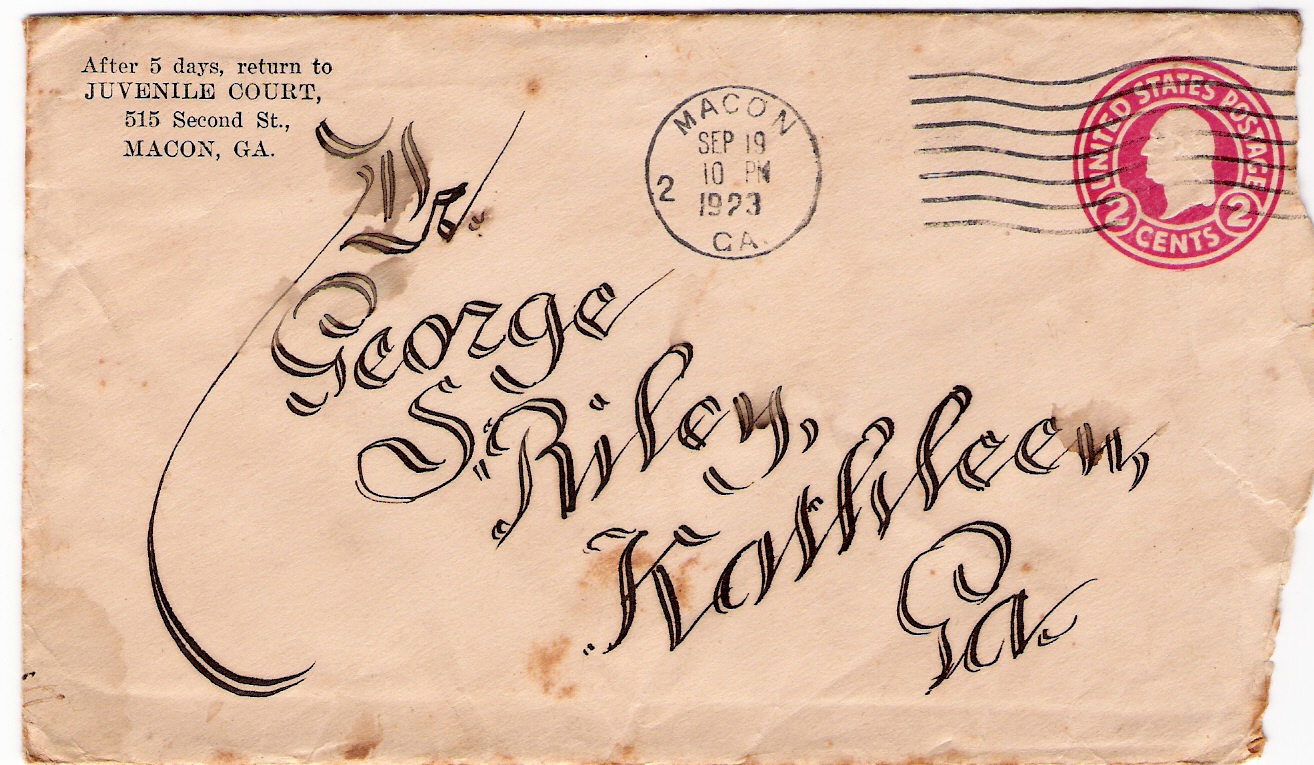 After 5 days, return to
JUVENILE COURT,
515 Second St.,
MACON, GA.
MACON
SEP 19
10 PM
2
1923
GA.
UNITED STATES POSTAGE
2 CENTS 2
Mr.
George
S. Riley,
Kathleen,
Ga.